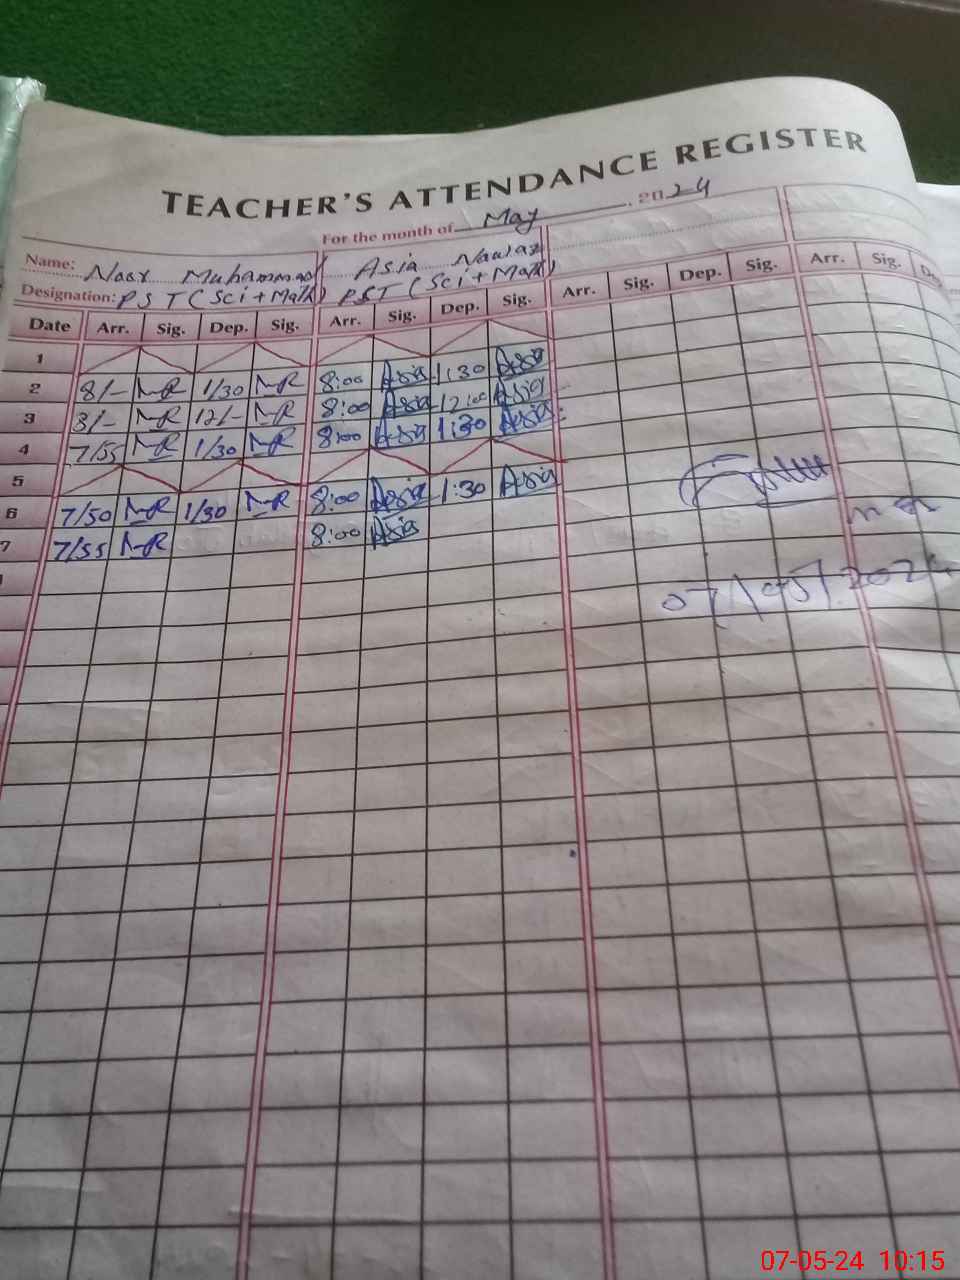 TEACHER'S ATTENDANCE REGISTER
For the month of May, 2024
Name: Noor Muhammad Asia Nawaz
Designation: PST (Sci + Math) PST (Sci + Math)
Date Arr. Sig. Dep. Sig. Arr. Sig. Dep. Sig. Arr. Sig. Dep. Sig. Arr. Sig.
1
2 8/- NR 1/30 NR 8:00 Asia 1:30 Asia
3 8/- NR 12/- NR 8:00 Asia 12:00 Asia
4 7/55 NR 1/30 NR 8:00 Asia 1:30 Asia
5
6 7/50 NR 1/30 NR 8:00 Asia 1:30 Asia
7 7/55 NR 8:00 Asia
07/05/2024
07-05-24 10:15